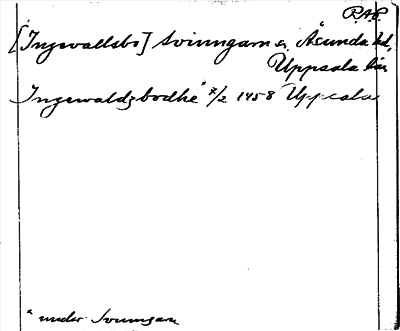 R.A.P.
[Ingevallsbo] Svinngarn s. Åsunda hd,
Uppsala län
Ingewaldzbodhe* 7/2 1458 Uppsala
* under Svinngarn